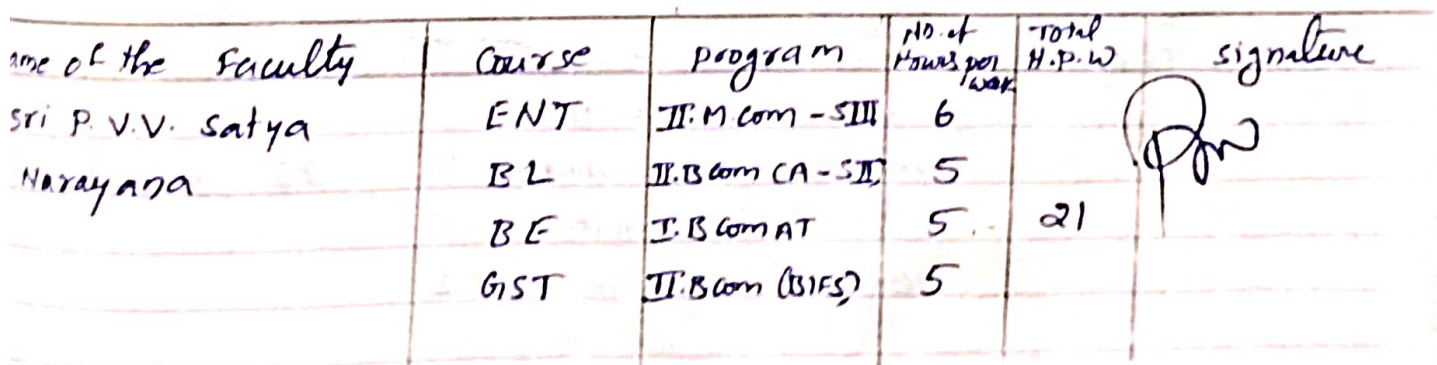 ame of the Faculty Course program No. of Hours per week Total H.P.W signature
Sri P. V.V. Satya ENT II. M.com - SIII 6
Narayana BL II.B com CA - SII 5
BE I.B com AT 5 21
GST II.B com (BIFS) 5